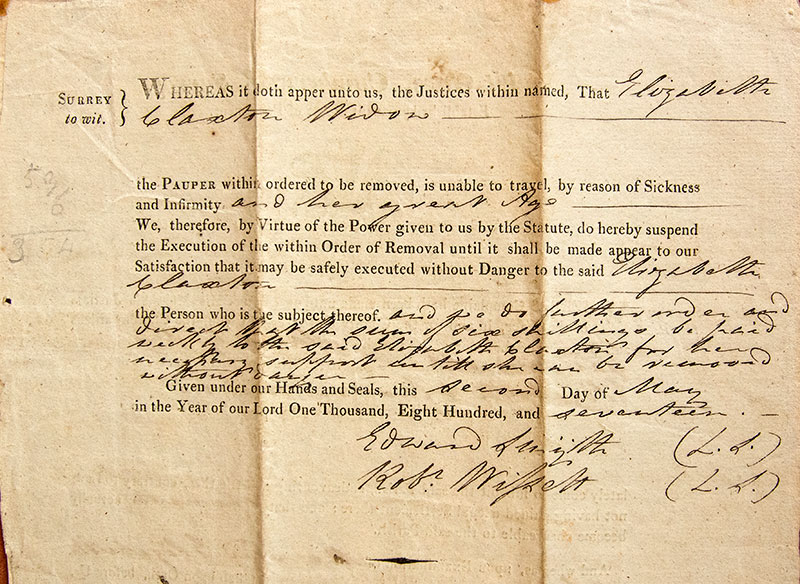 SURREY to wit. } WHEREAS it doth apper unto us, the Justices within named, That Elizabeth
Claxton Widow
the PAUPER within ordered to be removed, is unable to travel, by reason of Sickness
and Infirmity and her great Age
We, therefore, by Virtue of the Power given to us by the Statute, do hereby suspend
the Execution of the within Order of Removal until it shall be made appear to our
Satisfaction that it may be safely executed without Danger to the said Elizabeth
Claxton
the Person who is the subject thereof. and we do further order and
direct that the sum of six shillings be paid
weekly to the said Elizabeth Claxton for her
necessary support untill she can be removed
without danger
Given under our Hands and Seals, this second Day of May
in the Year of our Lord One Thousand, Eight Hundred, and seventeen.
Edward Smyth (L.S.)
Robt. Wissett (L.S.)